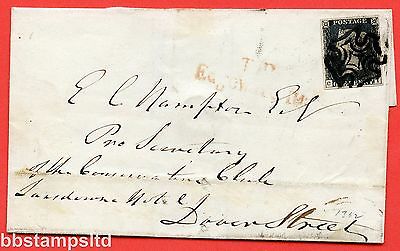 POSTAGE
T.P
E C Hampton Esq
Pro Secretary
of the Conservative Club
Lansdowne Hotel
Dover Street
bbstampsltd